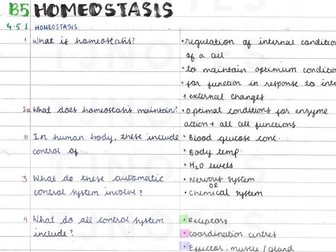 B5 HOMEOSTASIS
4.5.1 HOMEOSTASIS
1 What is homeostasis?
• regulation of internal condition
of a cell
• to maintain optimum condition
for function in response to inte
+ external changes
2a What does homeostasis maintain?
• Optimal conditions for enzyme
action + all cell functions
In human body, these include
control of...
• Blood glucose conc
• Body temp
• H2O levels
3 What do these automatic
control system involve?
• Nervous system
OR
• Chemical system
4 What do all control system
include?
• Receptors
• coordination centres
• Effector - muscle / gland